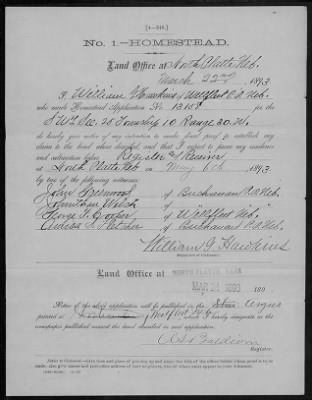 [4—348.]
No. 1.—HOMESTEAD.
Land Office at North Platte Neb.
March 22nd, 1893.
I, William G Hawkins, of Wellfleet P.O. Neb.
who made Homestead Application No. 13158 for the
SW¼ Sec. 28 Township 10 Range 30 W.
do hereby give notice of my intention to make final proof to establish my
claim to the land above described, and that I expect to prove my residence
and cultivation before Register & Receiver
at North Platte Neb on May 6th, 1893,
by two of the following witnesses:
John of Buchanan P.O. Neb.
Johnathan Welch of
George F. of Wellfleet Neb.
of Buchanan P.O. Neb.
William G. Hawkins
(Signature of Claimant.)
Land Office at NORTH PLATTE, NEB.
MAR 24 1893 189
Notice of the above application will be published in the Argus
printed at Wellfleet Neb, which I hereby designate as the
newspaper published nearest the land described in said application.
Register.